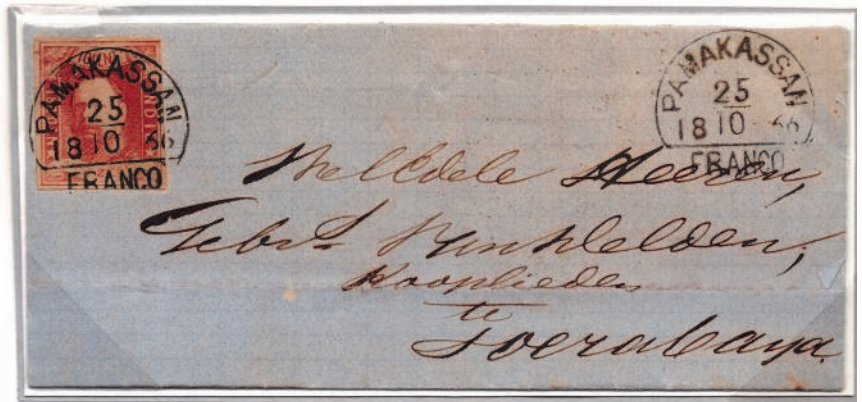 PAMAKASSAN
25
18 10 66
FRANCO
PAMAKASSAN
25
18 10 66
FRANCO
WelEdele Heeren,
Gebrs van Delden,
Kooplieden
te
Soerabaya.